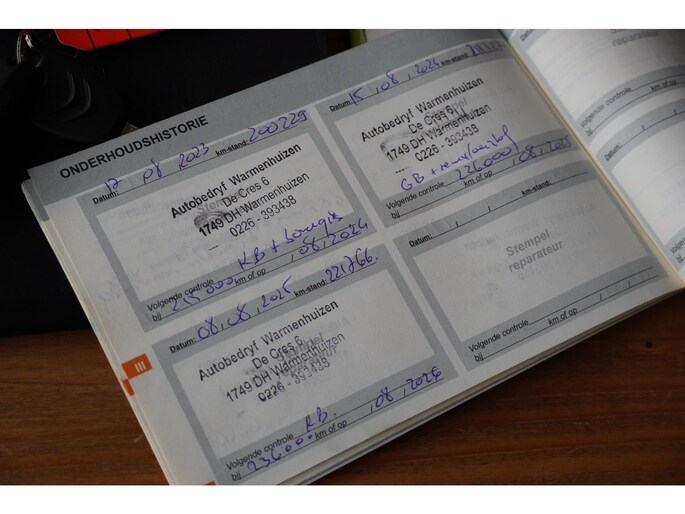 ONDERHOUDSHISTORIE
Datum: 17 08 2023 km-stand: 200729
Autobedryf Warmenhuizen
De Cres 6
1749 DH Warmenhuizen
0226 - 393438
KB + bougie
Volgende controle
bij 215000 km of op 08, 2024
Datum: 15, 08, 2024 km-stand:
Autobedryf Warmenhuizen
De Cres 6
1749 DH Warmenhuizen
0226 - 393438
GB +
Volgende controle
bij 226000 km of op 08, 2025
Datum: 08, 08, 2025 km-stand: 221766.
Autobedryf Warmenhuizen
De Cres 6
1749 DH Warmenhuizen
0226 - 393438
KB.
Volgende controle
bij: 236000 km of op , 08, 2026
Datum: / / km-stand:
Stempel
reparateur
Volgende controle
bij km of op / /
III
Stempel
reparateur
Volgende controle
bij
Datum:
Stempel
reparateur
Volgende controle
bij